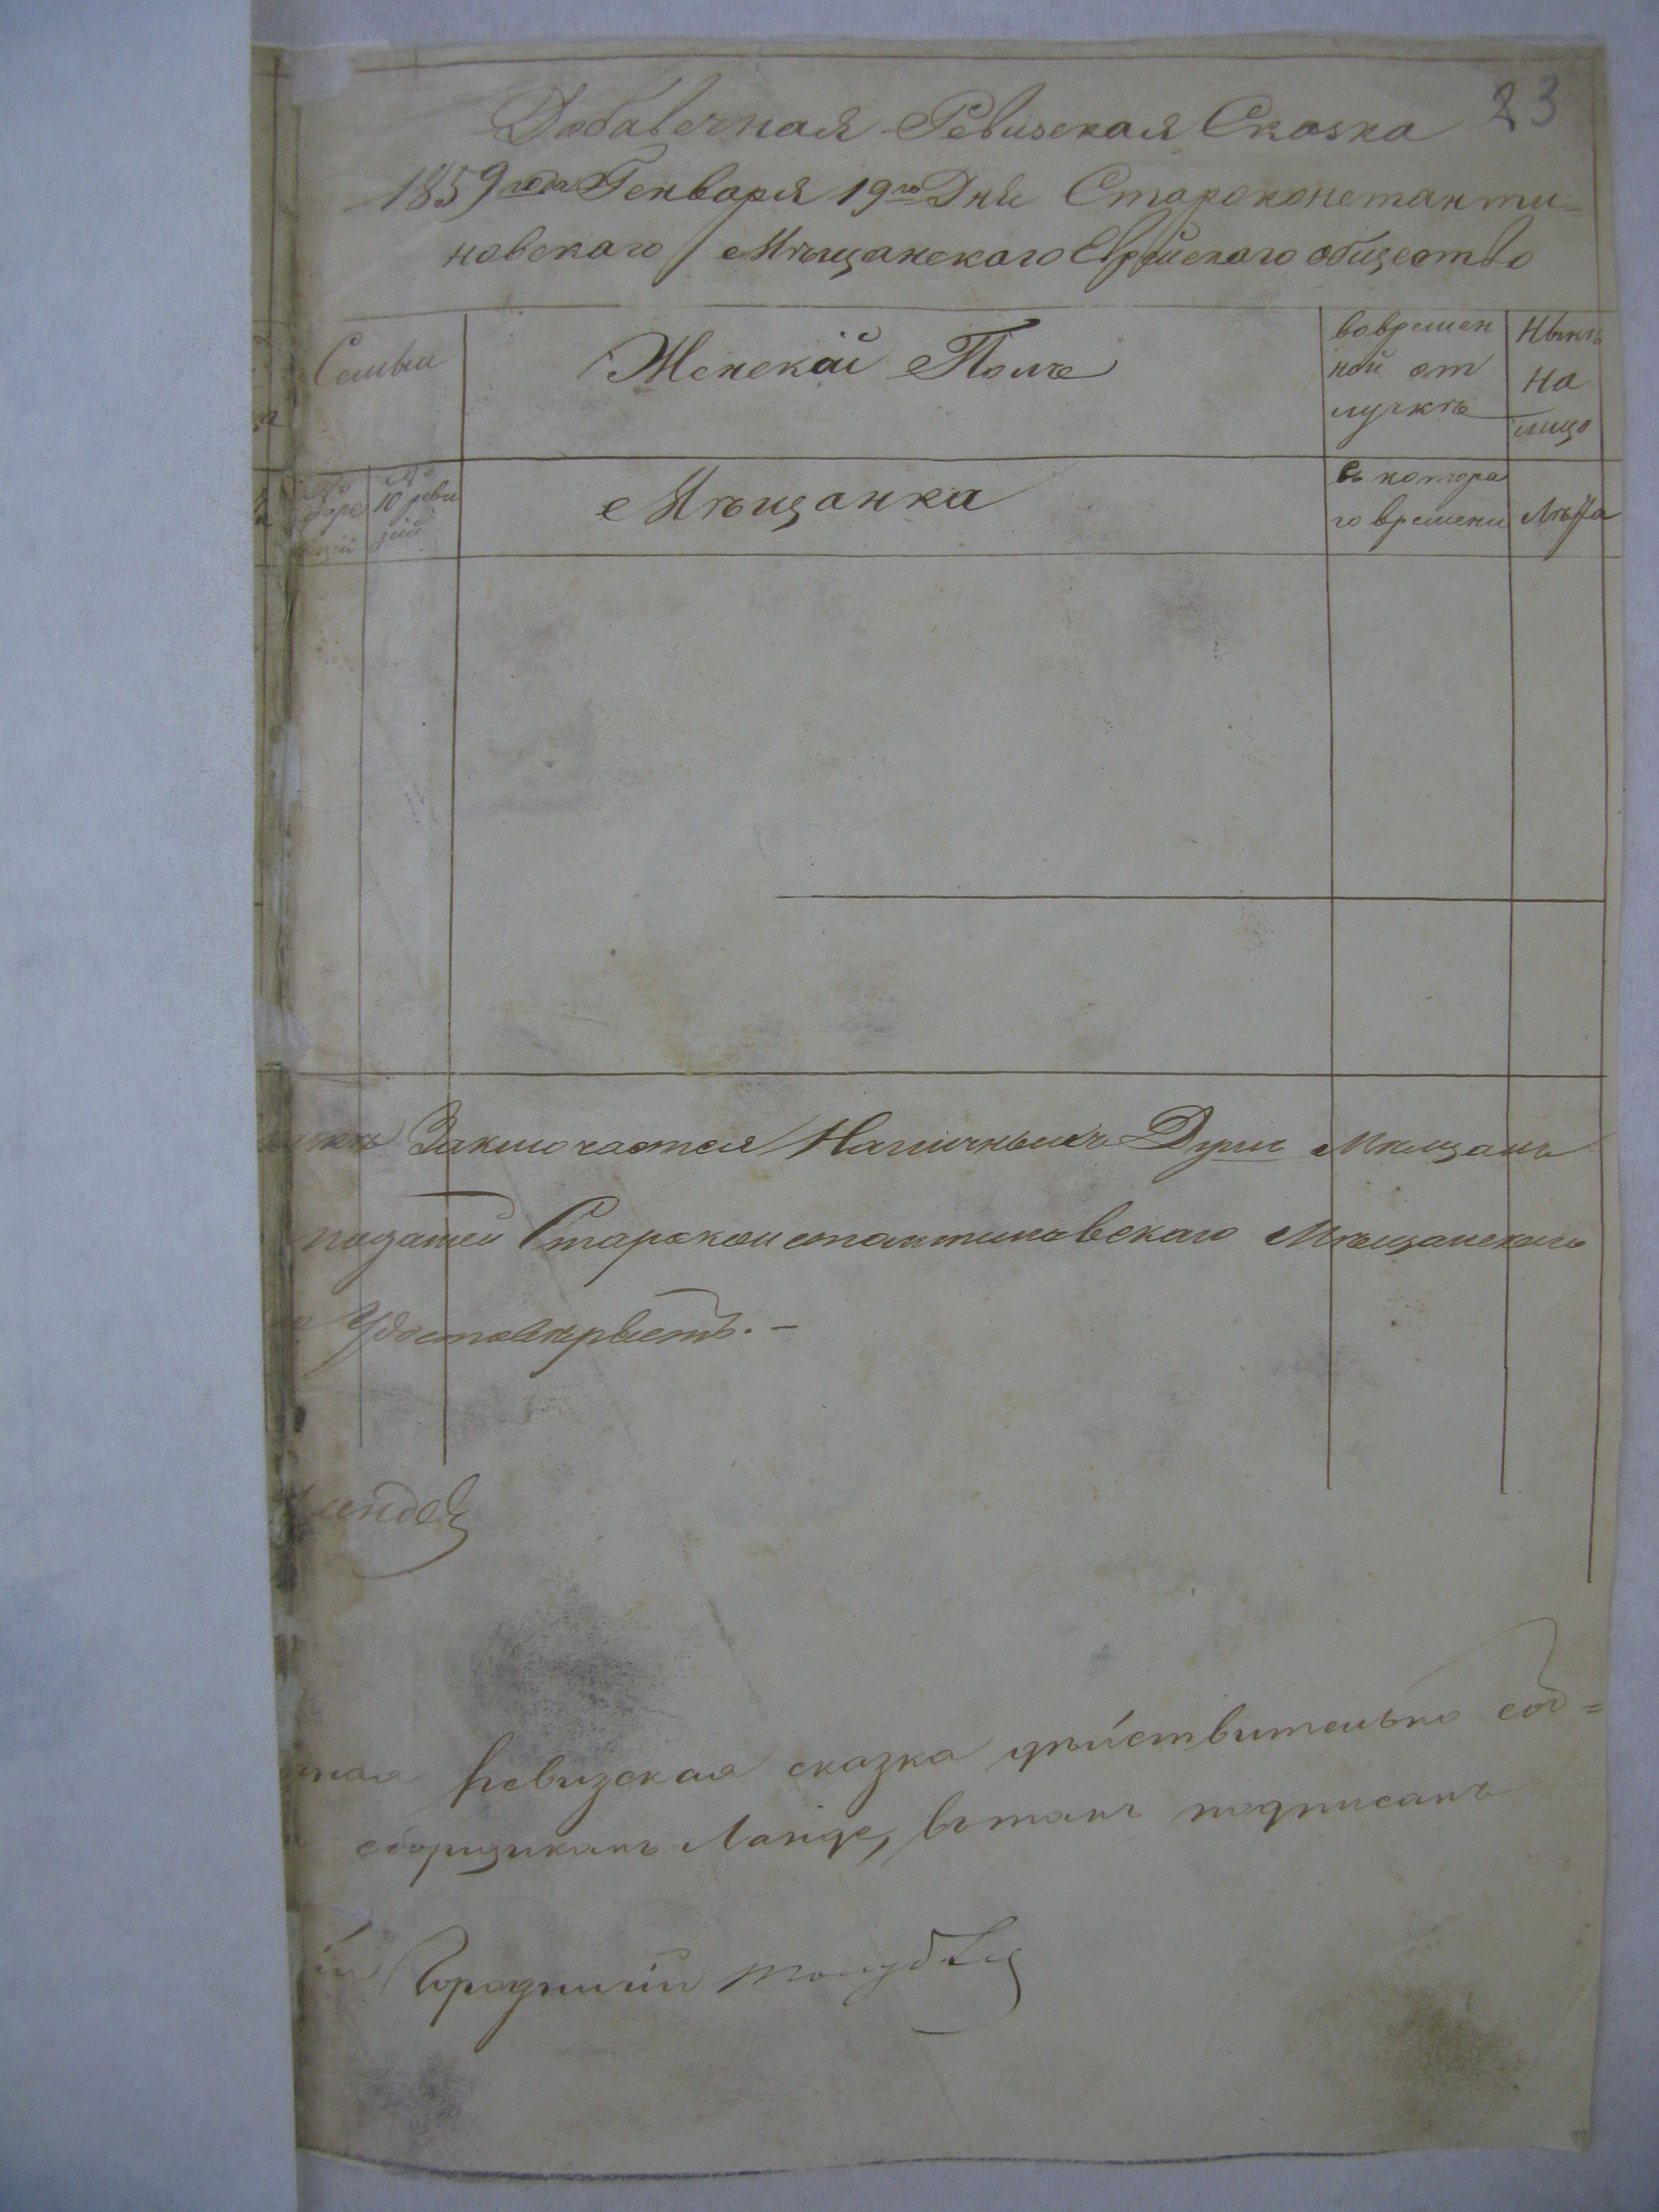 23
Добавечная Ревизская Сказка
1859 года Генворя 19го Дня Староконстанти=
новского Мѣщанского Еврейского общество
Семьи
Женскай Полъ
вовремен
ной от
лучкѣ
Нынѣ
на
лицо
№
10 реви
зии
Мѣщанка
съ котора
го времени
Лѣта
Заключается Наличныхъ Душъ Мѣщанъ
Староконстантиновскаго Мѣщанскаго
Удостовѣряетъ.-
ревизская сказка дѣйствительно соб=
сборщикомъ Ланде, въ томъ подписомъ
Городничій